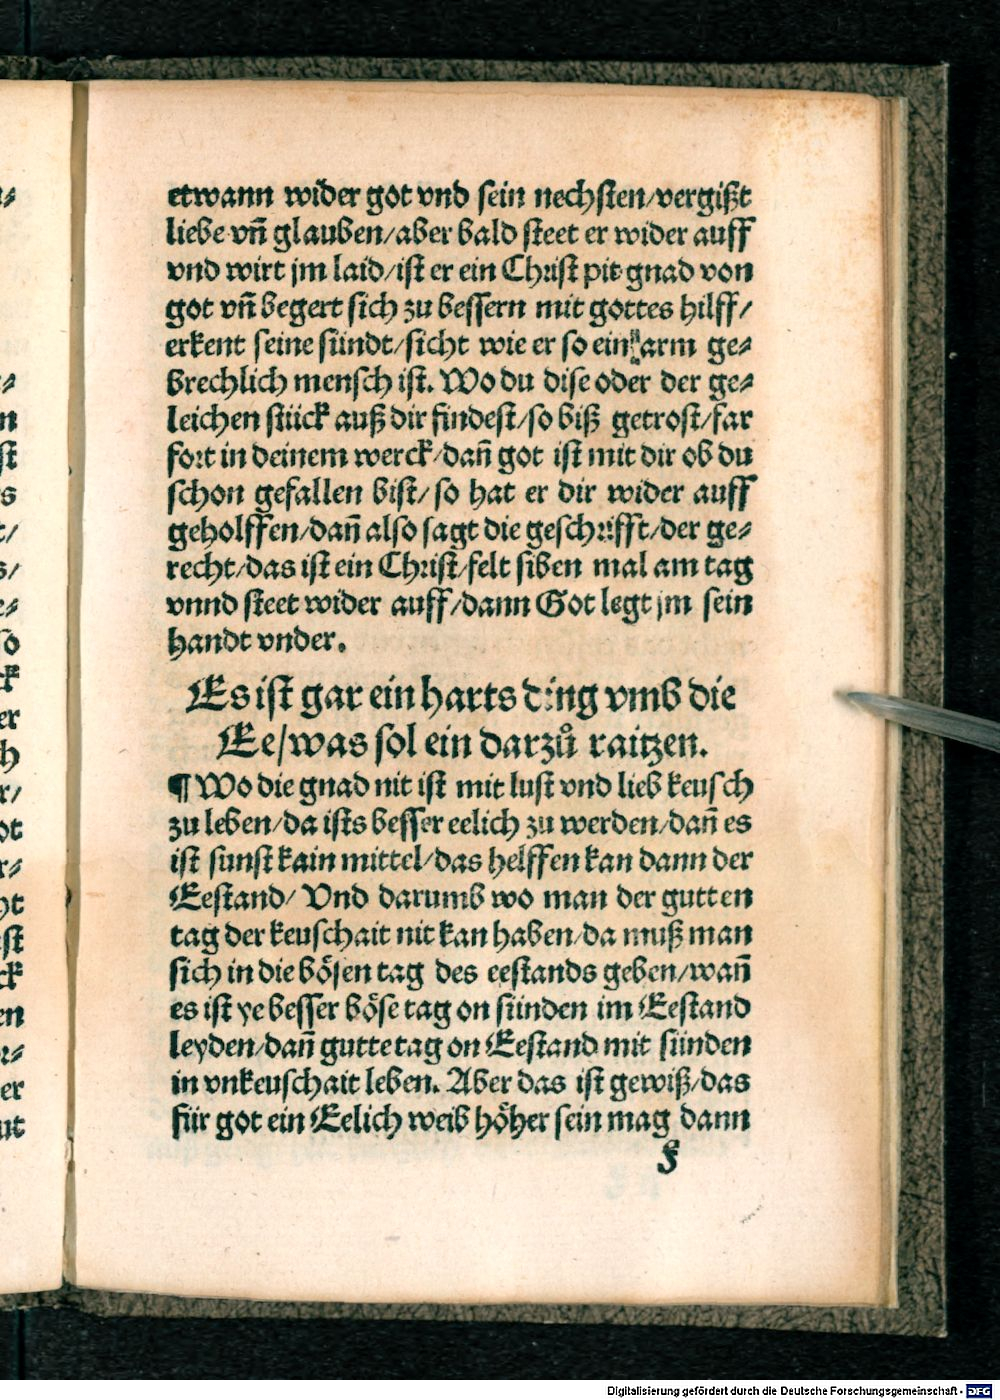 etwann wider got vnd sein nechsten/vergißt
liebe vñ glauben/aber bald steet er wider auff
vnd wirt jm laid/ist er ein Christ pit gnad von
got vñ begert sich zu bessern mit gottes hilff/
erkent seine sündt/sicht wie er so ein arm ge⸗
brechlich mensch ist. Wo du dise oder der ge⸗
leichen stück auß dir findest/so biß getrost/far
fort in deinem werck/dañ got ist mit dir ob du
schon gefallen bist/so hat er dir wider auff
geholffen/dañ also sagt die geschrifft/der ge⸗
recht/das ist ein Christ/felt siben mal am tag
vnnd steet wider auff/dann Got legt jm sein
handt vnder.
Es ist gar ein harts ding vmb die
Ee/was sol ein darzů raitzen.
¶ Wo die gnad nit ist mit lust vnd lieb keusch
zu leben/da ists besser eelich zu werden/dañ es
ist sunst kain mittel/das helffen kan dann der
Eestand/ Vnd darumb wo man der gutten
tag der keuschait nit kan haben/da muß man
sich in die bösen tag des eestands geben/wañ
es ist ye besser böse tag on sünden im Eestand
leyden/dañ gutte tag on Eestand mit sünden
in vnkeuschait leben. Aber das ist gewiß/das
für got ein Eelich weib höher sein mag dann
Digitalisierung gefördert durch die Deutsche Forschungsgemeinschaft - DFG